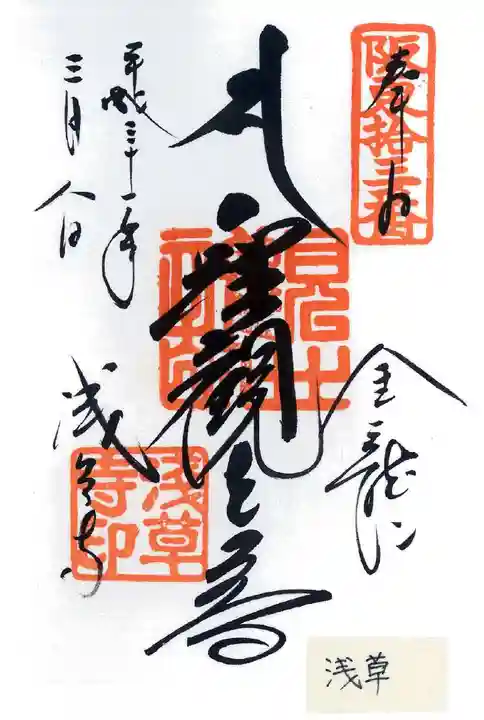 奉拝
阪東拾三番
金龍山
聖観世音
浅草寺
浅草寺印
平成三十一年
三月八日
浅草